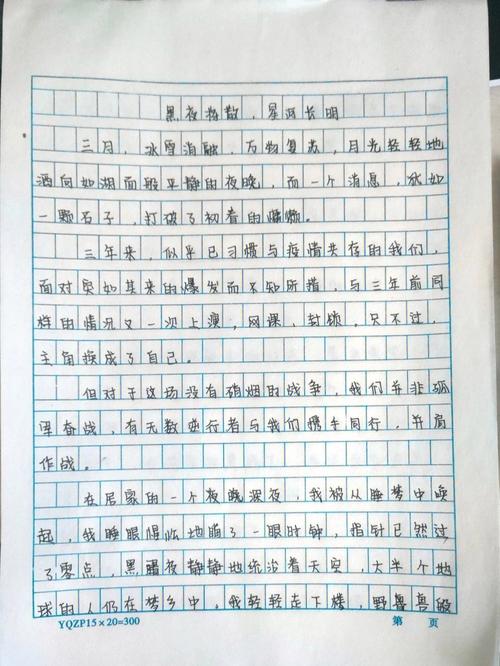 黑夜将散，星河长明
三月，冰雪消融，万物复苏，月光轻轻地
洒向如湖面般平静的夜晚，而一个消息，犹如
一颗石子，打破了初春的慵懒。
三年来，似乎已习惯与疫情共存的我们，
面对突如其来的爆发而不知所措，与三年前同
样的情况又一次上演，网课，封锁，只不过，
主角换成了自己。
但对于这场没有硝烟的战争，我们并非孤
军奋战，有无数逆行者与我们携手同行，并肩
作战。
在居家的一个夜晚深夜，我被从睡梦中唤
起，我睡眼惺忪地瞄了一眼时钟，指针已然过
了零点，黑暗夜静静地统治着天空，大半个地
球的人仍在梦乡中。我轻轻走下楼，野兽兽般
YQZP15×20=300
第 页